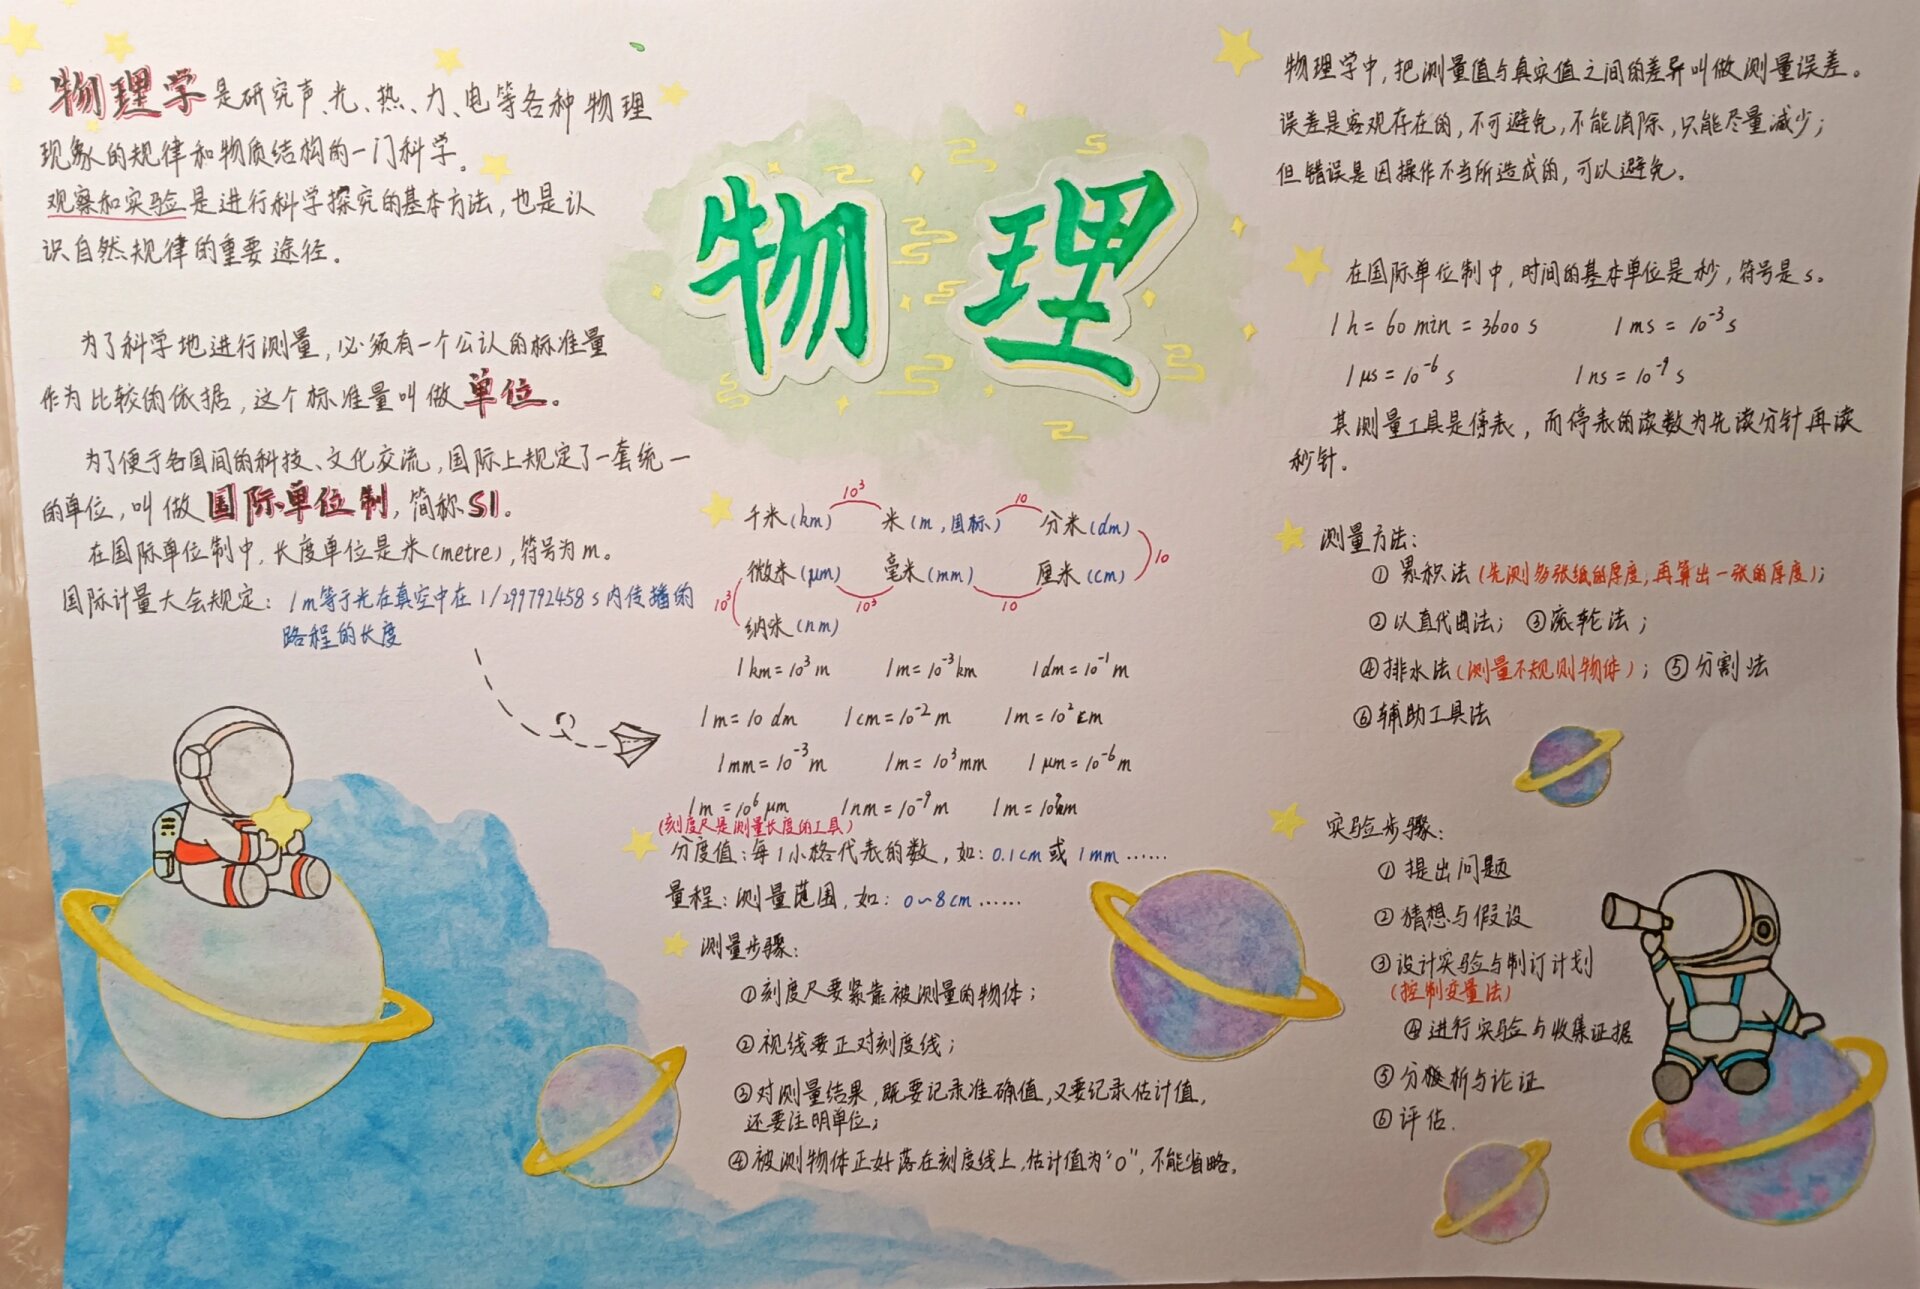 物理学是研究声、光、热、力、电等各种物理
现象的规律和物质结构的一门科学。
观察和实验是进行科学探究的基本方法，也是认
识自然规律的重要途径。
为了科学地进行测量，必须有一个公认的标准量
作为比较的依据，这个标准量叫做单位。
为了便于各国间的科技、文化交流，国际上规定了一套统一
的单位，叫做国际单位制，简称SI。
在国际单位制中，长度单位是米(metre)，符号为m。
国际计量大会规定：1m等于光在真空中在1/299792458 s内传播的
路程的长度
物理
10³ 10
千米(km) 米(m，国标) 分米(dm)
10
微米(μm) 毫米(mm) 厘米(cm)
10³ 10³ 10
纳米(nm)
1km=10³m 1m=10⁻³km 1dm=10⁻¹m
1m=10dm 1cm=10⁻²m 1m=10²cm
1mm=10⁻³m 1m=10³mm 1μm=10⁻⁶m
1m=10⁶μm 1nm=10⁻⁹m 1m=10⁹nm
(刻度尺是测量长度的工具)
分度值：每1小格代表的数，如：0.1cm或1mm……
量程：测量范围，如：0~8cm……
测量步骤：
①刻度尺要紧靠被测量的物体；
②视线要正对刻度线；
③对测量结果，既要记录准确值，又要记录估计值，
还要注明单位；
④被测物体正好落在刻度线上，估计值为“0”，不能省略。
物理学中，把测量值与真实值之间的差异叫做测量误差。
误差是客观存在的，不可避免，不能消除，只能尽量减少；
但错误是因操作不当所造成的，可以避免。
在国际单位制中，时间的基本单位是秒，符号是s。
1h=60min=3600s 1ms=10⁻³s
1μs=10⁻⁶s 1ns=10⁻⁹s
其测量工具是停表，而停表的读数为先读分针再读
秒针。
测量方法：
①累积法(先测多张纸的厚度，再算出一张的厚度)；
②以直代曲法；③滚轮法；
④排水法(测量不规则物体)；⑤分割法
⑥辅助工具法
实验步骤：
①提出问题
②猜想与假设
③设计实验与制订计划
(控制变量法)
④进行实验与收集证据
⑤分析与论证
⑥评估.